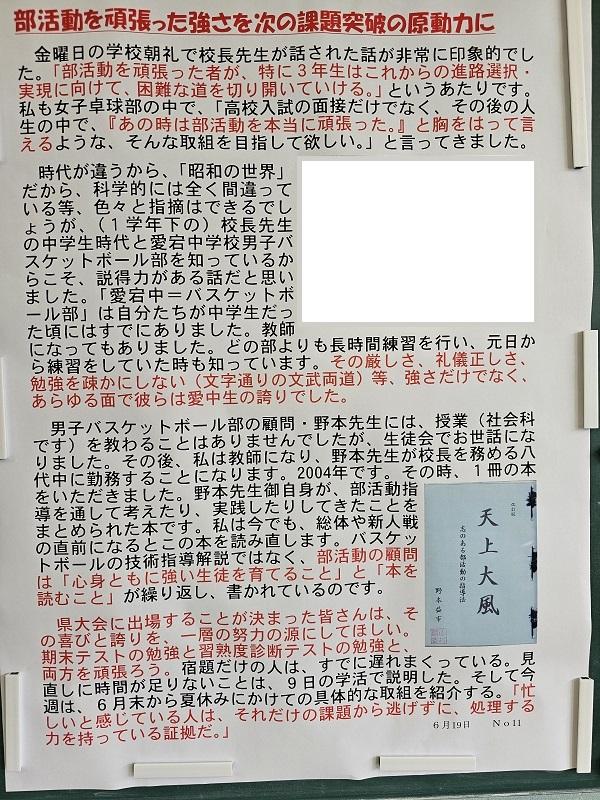 部活動を頑張った強さを次の課題突破の原動力に
金曜日の学校朝礼で校長先生が話された話が非常に印象的でし
た。「部活動を頑張った者が、特に３年生はこれからの進路選択・
実現に向けて、困難な道を切り開いていける。」というあたりです。
私も女子卓球部の中で、「高校入試の面接だけでなく、その後の人
生の中で、『あの時は部活動を本当に頑張った。』と胸をはって言
えるような、そんな取組を目指して欲しい。」と言ってきました。
時代が違うから、「昭和の世界」
だから、科学的には全く間違って
いる等、色々と指摘はできるでし
ょうが、（１学年下の）校長先生
の中学生時代と愛宕中学校男子バ
スケットボール部を知っているか
らこそ、説得力がある話だと思い
ました。「愛宕中＝バスケットボ
ール部」は自分たちが中学生だっ
た頃にはすでにありました。教師
になってもありました。どの部よりも長時間練習を行い、元日か
ら練習をしていた時も知っています。その厳しさ、礼儀正しさ、
勉強を疎かにしない（文字通りの文武両道）等、強さだけでなく、
あらゆる面で彼らは愛中生の誇りでした。
男子バスケットボール部の顧問・野本先生には、授業（社会科
です）を教わることはありませんでしたが、生徒会でお世話にな
りました。その後、私は教師になり、野本先生が校長を務める八
代中に勤務することになります。2004年です。その時、１冊の本
をいただきました。野本先生御自身が、部活動指
導を通して考えたり、実践したりしてきたことを
まとめられた本です。私は今でも、総体や新人戦
の直前になるとこの本を読み直します。バスケッ
トボールの技術指導解説ではなく、部活動の顧問
は「心身ともに強い生徒を育てること」と「本を
読むこと」が繰り返し、書かれているのです。
天上大風
志のある部活動の指導法
野本益市
県大会に出場することが決まった皆さんは、そ
の喜びと誇りを、一層の努力の源にしてほしい。
期末テストの勉強と習熟度診断テストの勉強と、
両方を頑張ろう。宿題だけの人は、すでに遅れまくっている。見
直しに時間が足りないことは、９日の学活で説明した。そして今
週は、６月末から夏休みにかけての具体的な取組を紹介する。「忙
しいと感じている人は、それだけの課題から逃げずに、処理する
力を持っている証拠だ。」
６月19日　Ｎo11